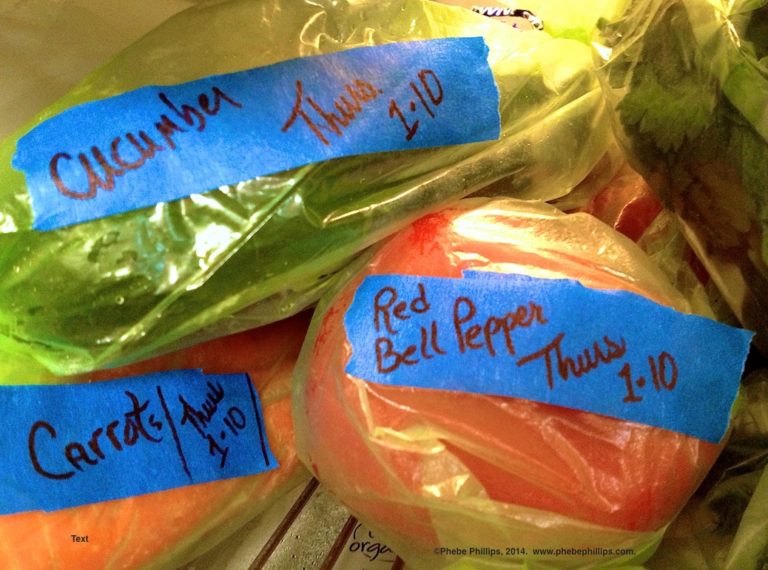 Cucumber Thurs. 1.10
Red
Bell Pepper Thurs 1.10
Carrots Thurs 1.10
Text
orga
©Phebe Phillips, 2014. www.phebephillips.com.